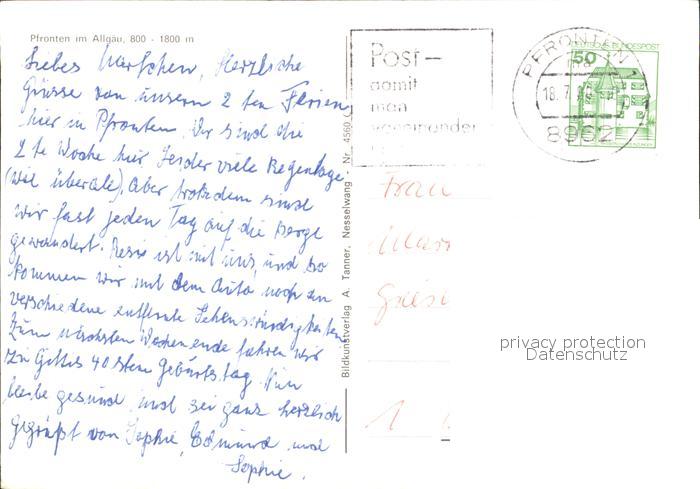 Pfronten im Allgäu, 800 - 1800 m
Liebes Herzliche
Grüsse von unsern 2 ten Ferien
hier in Pfronten. Wir sind die
2 te Woche hier leider viele Regentage
(wie überale). Aber trotzdem sind
wir fast jeden Tag auf die Berge
gewandert. Resie ist mit uns, und so
kommen wir mit dem Auto noch an
verschiedene entfernte Sehenswürdigkeiten
Zum nächsten Wochenende fahren wir
zu 40 sten Geburtstag. Nun
bleibe gesund und sei ganz herzlich
gegrüßt von Sophie, Edmund und
Sophie.
Bildkunstverlag A. Tanner, Nesselwang Nr. 4560
Post-
damit
man
voneinander
PFRONTEN 1
ma
18.7.
8962
DEUTSCHE BUNDESPOST
50
Frau
Mar
Gries
1
privacy protection
Datenschutz